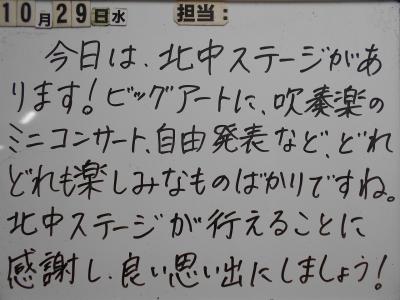 10月29日水 担当:
今日は、北中ステージがあ
ります!ビッグアートに、吹奏楽の
ミニコンサート、自由発表など、どれ
どれも楽しみなものばかりですね。
北中ステージが行えることに
感謝し、良い思い出にしましょう!